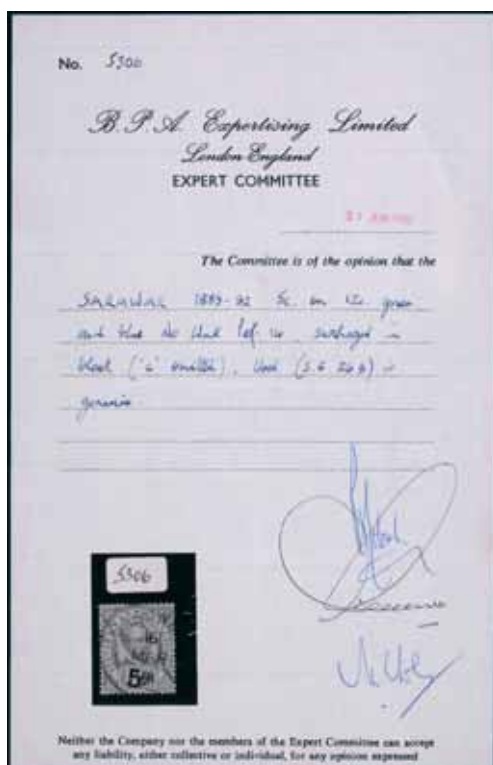 No. 5306
B.P.A. Expertising Limited
London England
EXPERT COMMITTEE
The Committee is of the opinion that the
SARAWAK 1889-92 5c. on 12c. green
and blue No
black ('C' omitted), Used (S.G
genuine
5306
5
Neither the Company nor the members of the Expert Committee can accept
any liability, either collective or individual, for any opinion expressed